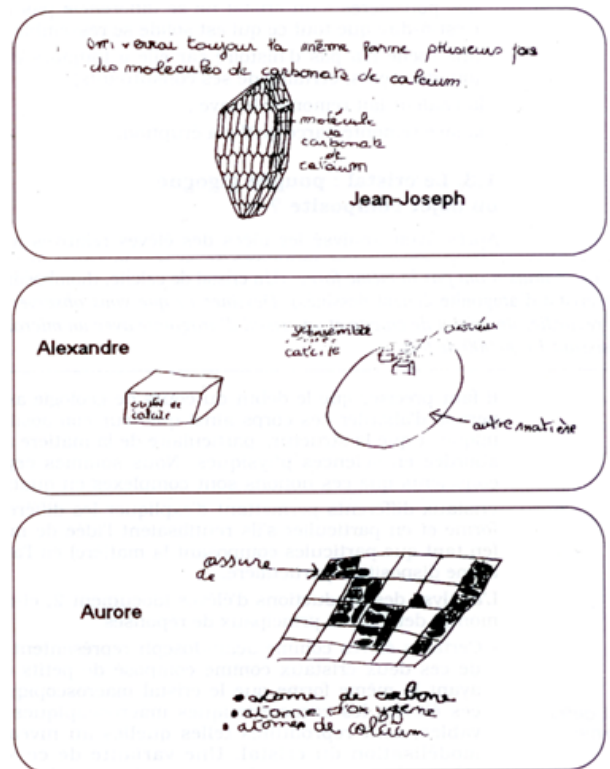 on verrai toujour la même forme plusieurs fois
des molécules de carbonate de calcium.
molécule
de
carbonate
de
calcium
Jean-Joseph
Alexandre
calcite
cristal de
calcite
autre matière
assure
de
Aurore
• atome de carbone
• atome d'oxygène
• atomes de calcium